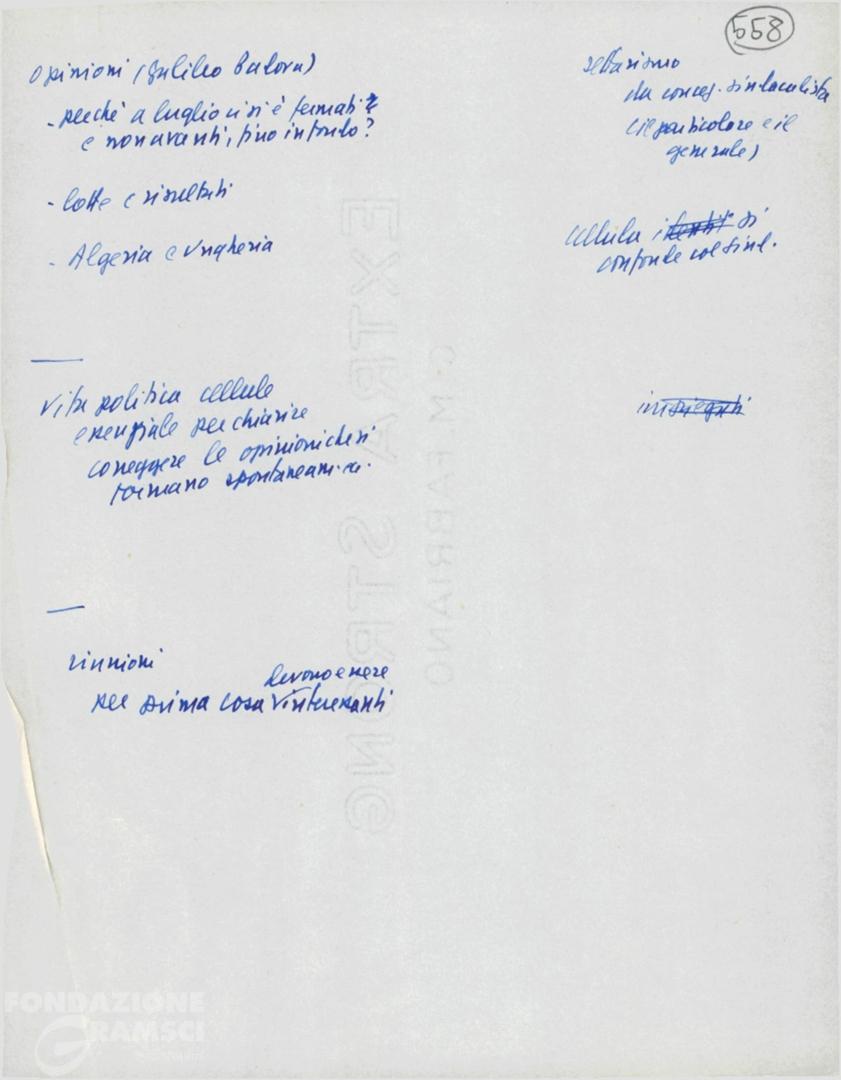 558
opinioni (Galileo Padova)
- perché a luglio ci si è fermati
e non avanti, fino in fondo?
- lotte e risultati
- Algeria e Ungheria
vita politica cellule
essenziale per chiarire
correggere le opinioni che si
formano spontaneam.
riunioni
devono essere
per prima cosa interessanti
settarismo
da concez. sindacalista
(il particolare e il
generale)
cellula si
confonde col sind.
EXTRA STRONG
G.M. FABRIANO
FONDAZIONE
GRAMSCI